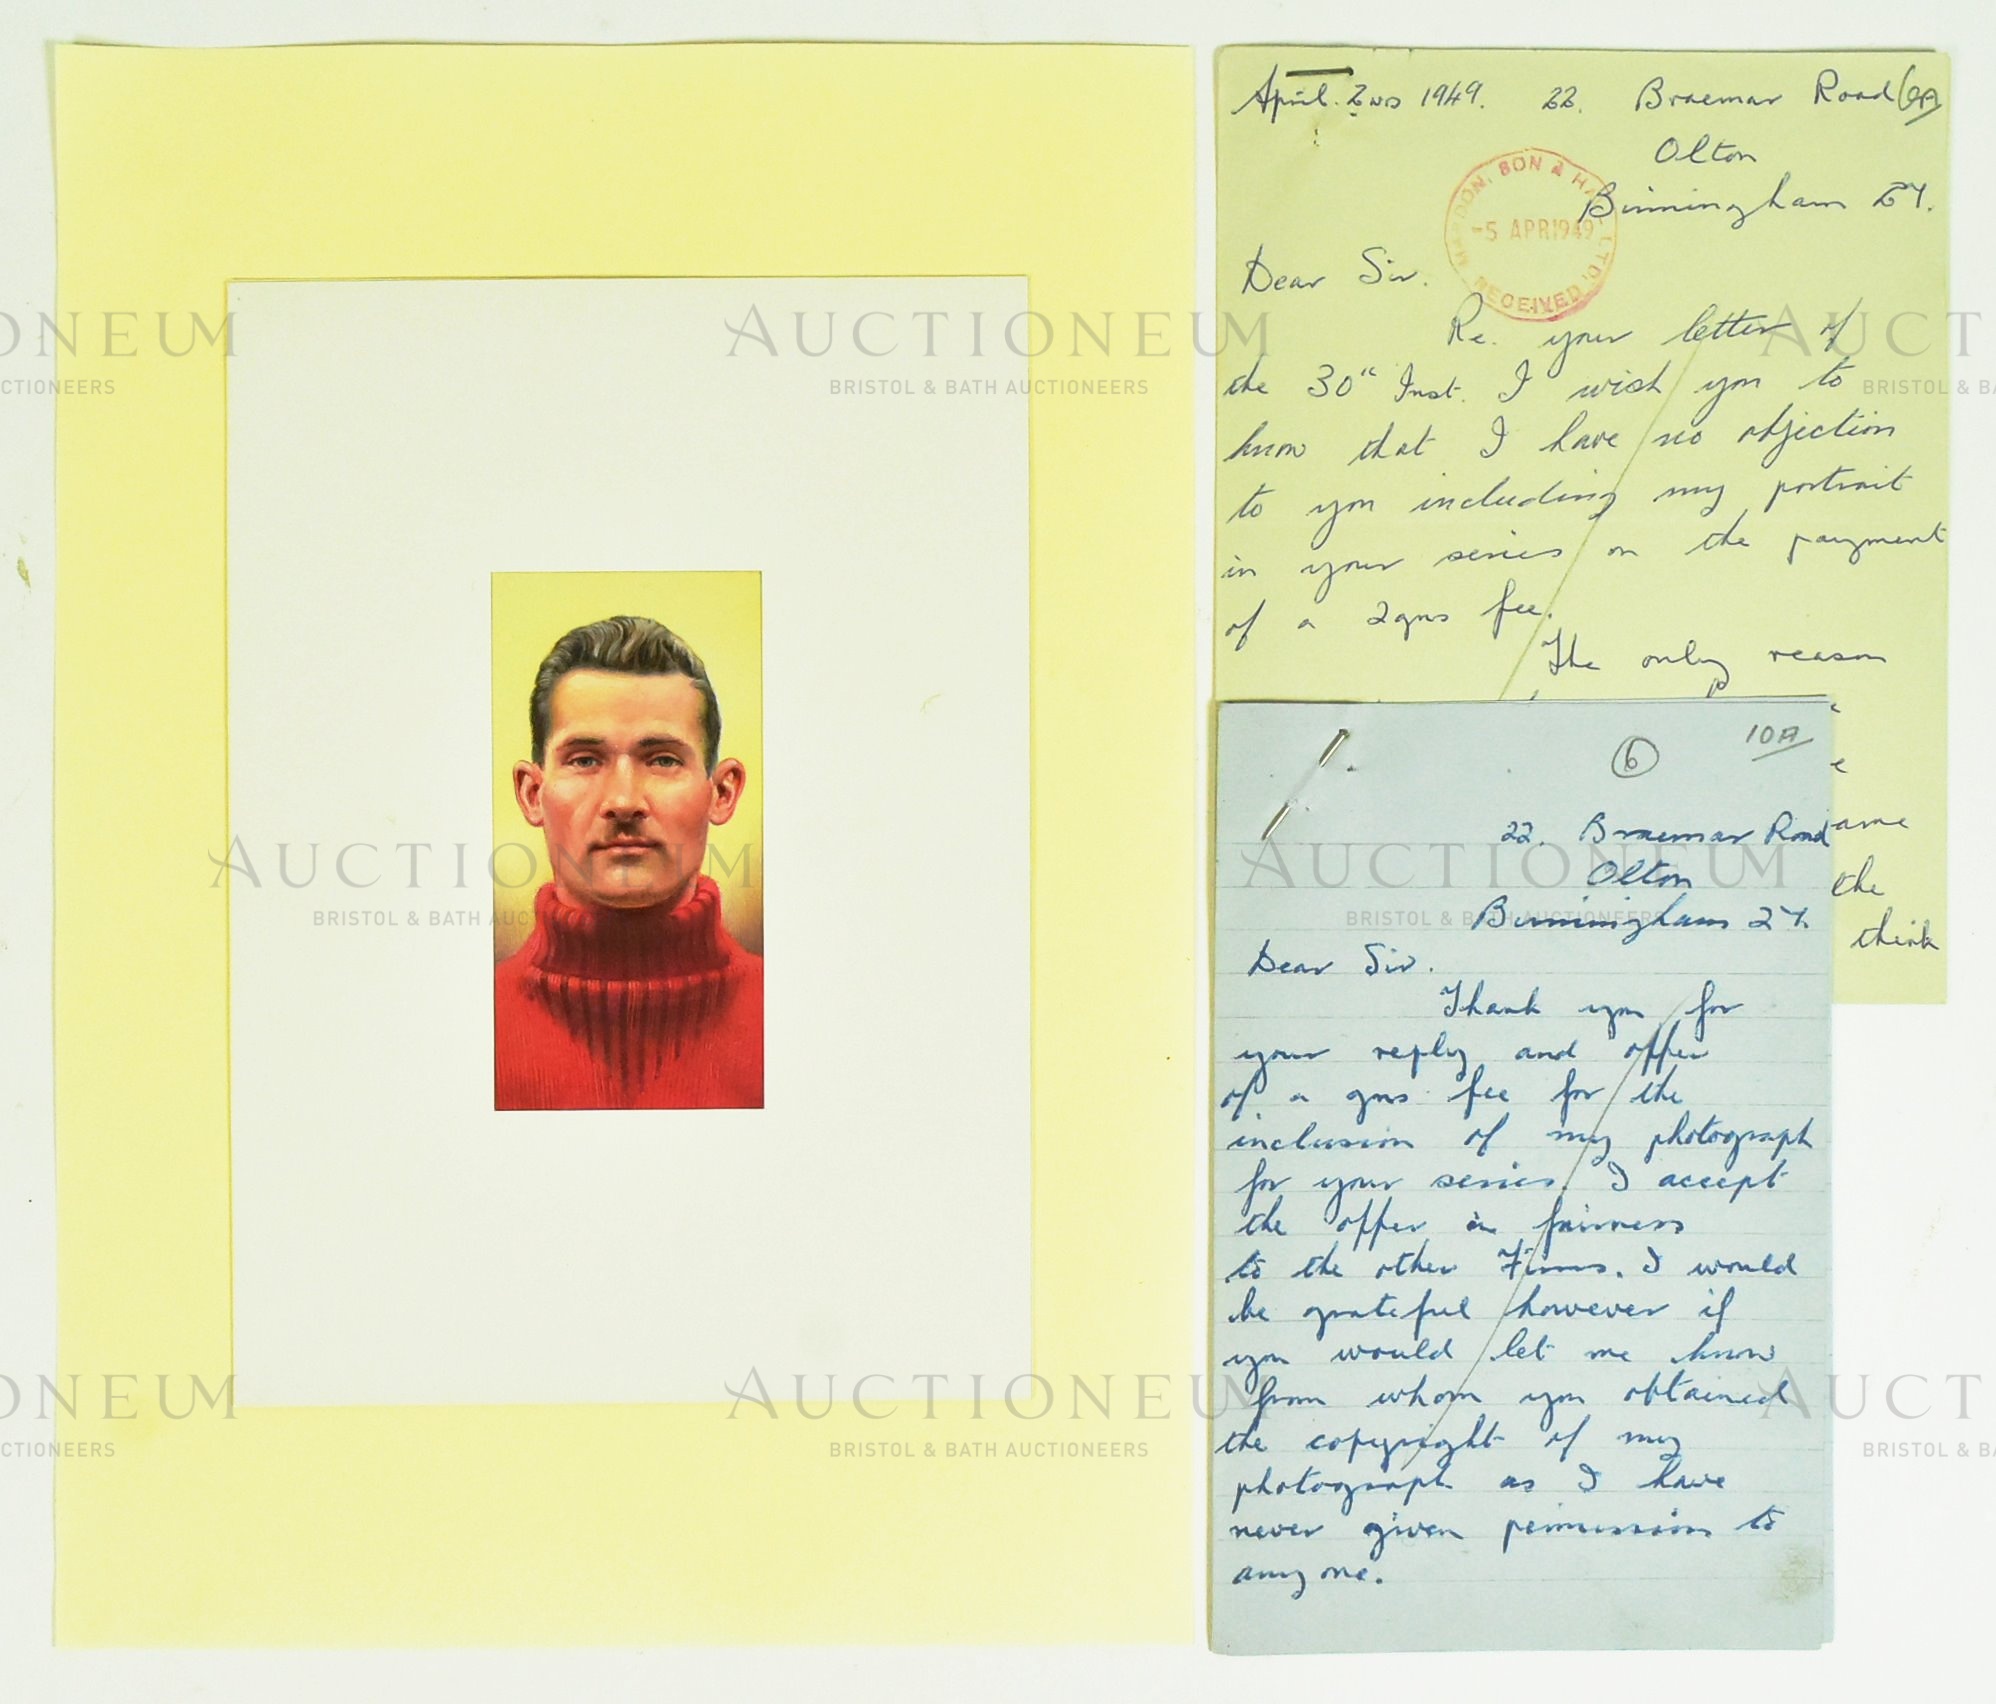 April. 2nd 1949. 22. Braemar Road
Olton
Birmingham 27.
SON & LTD.
-5 APR 1949
RECEIVED
Dear Sir.
Re. your letter of
the 30" Inst. I wish you to
know that I have no objection
to you including my portrait
in your series on the payment
of a 2gns fee.
The only reason
ame
the
think
6 10A
22. Braemar Road
Olton
Birmingham 27.
Dear Sir.
Thank you for
your reply and offer
of a gns fee for the
inclusion of my photograph
for your series. I accept
the offer in fairness
to the other Firms. I would
be grateful however if
you would let me know
from whom you obtained
the copyright of my
photograph as I have
never given permission to
any one.
AUCTIONEUM
BRISTOL & BATH AUCTIONEERS